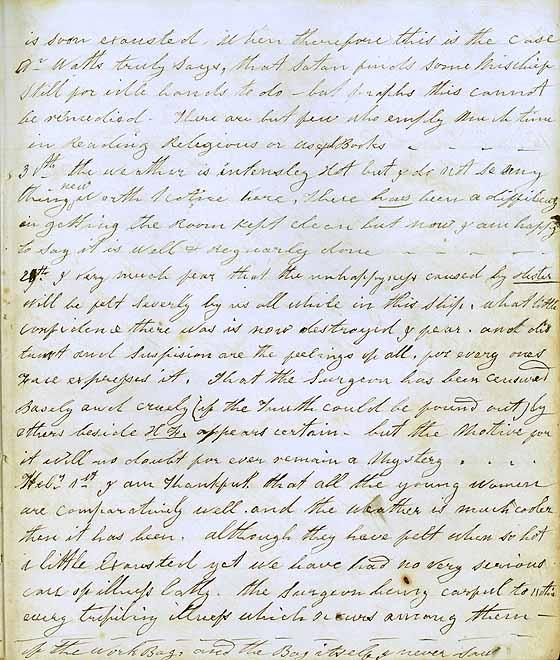 is soon exausted. When therefore this is the case
Dr Watts truly says, that Satan finds some mischief
still for idle hands to do - but praphs this cannot
be remedied. There are but few who employ much time
in Reading Religious or useful Books - - - -
31st the weather is intensley Hot but I do not se any
thing new worth Notice here, there has been a difficulty
in getting the Room kept clean but now I am happy
to say it is well & regurarly done
29th I very much fear that the unhappyness caused by
will be felt severly by us all while in this ship, what little
confidence there was is now destroyed I fear. and dis
trust and Suspision are the feelings of all. for every ones
Face expresses it. That the Surgeon has been censured
Basely and cruely (if the Truth could be found out) by
others beside appears certain - but the Motive for
it will no doubt for ever remain a Mystery . . . .
Feby 1st I am Thankfull that all the young women
are comparatively well. and the weather is much cooler
then it has been. although they have felt when so hot
a little Exausted yet we have had no very serious
case of illness lately. the Surgeon being carful to notice
every trifiling illness which ocurs among them -
of the work Bag, and the Bag itself I never saw